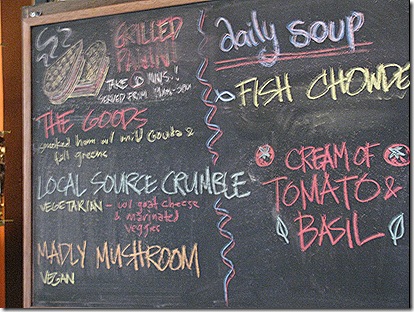 GRILLED
PANINI
TAKE 10 MINS.!
SERVED FROM 11am-3pm
THE GOODS
smoked ham w/ mild Gouda &
fall greens
LOCAL SOURCE CRUMBLE
VEGETARIAN - w/ goat cheese
& marinated
veggies
MADLY MUSHROOM
VEGAN
daily soup
FISH CHOWDE
CREAM OF
TOMATO &
BASIL